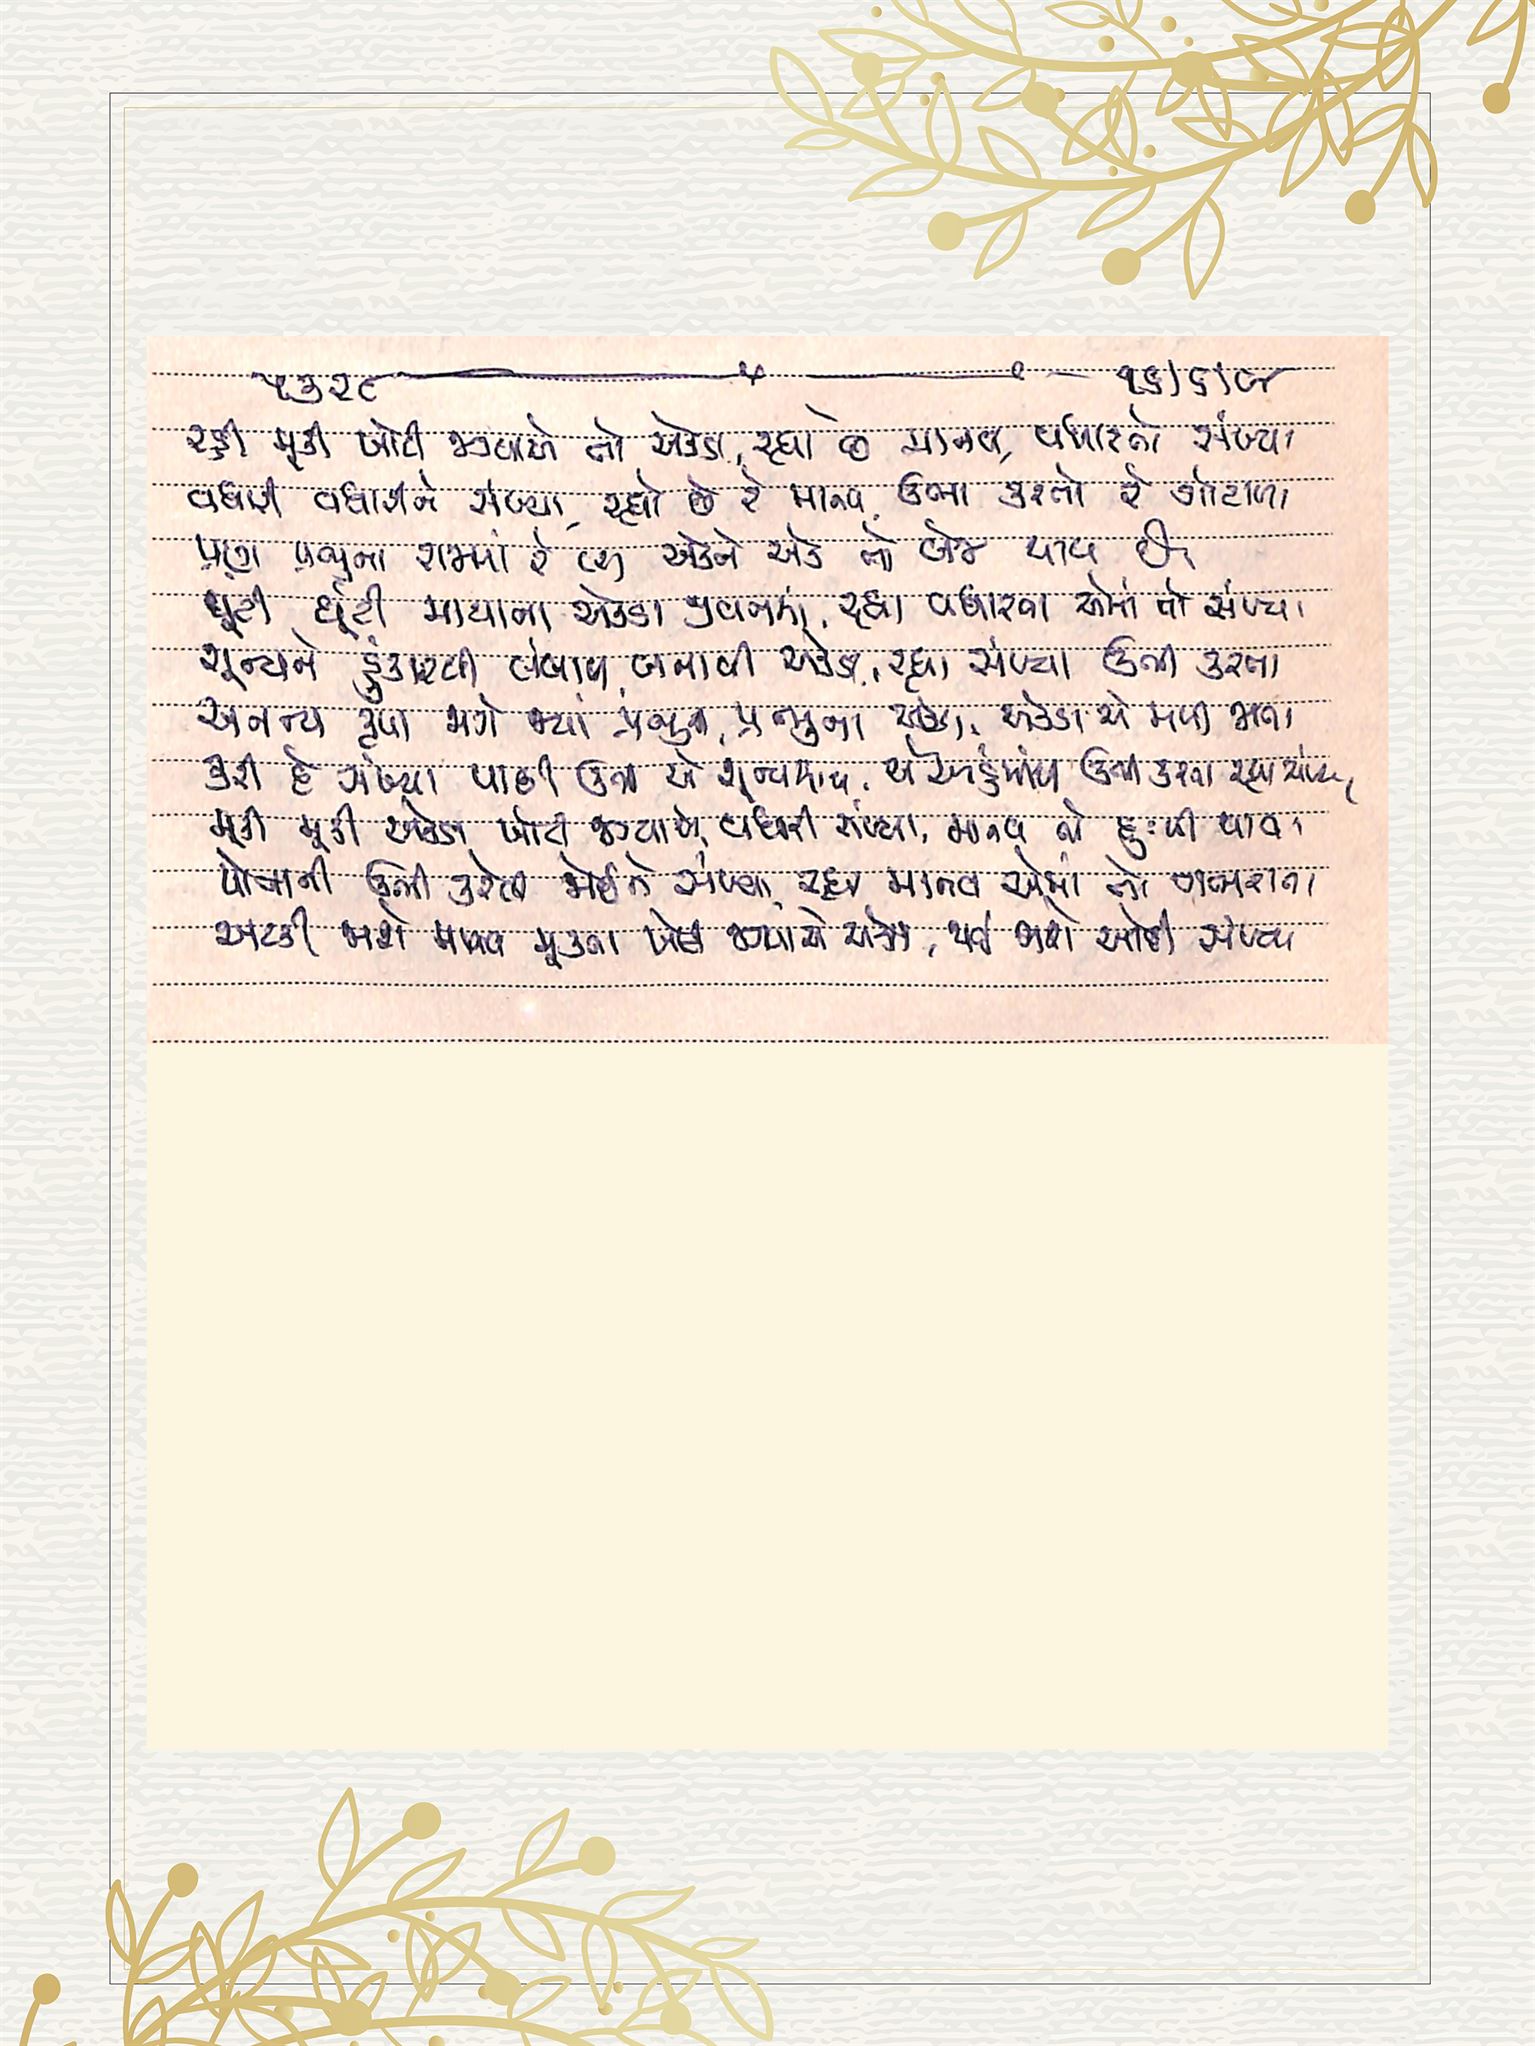 ૫૩૨૯ ૧૬/૬/૯૪
રહી મૂકી ખોટી જગ્યાએ તો એકડા, રહ્યા છે માનવ, વધારતો સંખ્યા
વધારી વધારીને સંખ્યા, રહ્યો છે રે માનવ, ઊભા કરતો રે ગોટાળા
પ્રભુના રાજમાં રે એકને એક તો બેજ થાય છે
ઘૂંટી ઘૂંટી માયાના એકડા જીવનમાં, રહ્યા વધારતા એમાં તો સંખ્યા
શૂન્યને હુંકારથી બનાવી એકડા, રહ્યા સંખ્યા ઊભી કરતા
અનન્ય કૃપા મળે જ્યાં પ્રભુની, પ્રભુના એકડા, એકડા એ મળી જાતા
કરી દે સંખ્યા પાછી ઊભી એ શૂન્યમાંય, એ ઊભી કરતા રહ્યા સંખ્યા
મૂકી મૂકી એકડા ખોટી જગ્યાએ, વધારી સંખ્યા, માનવ તો દુઃખી થાતા
પોતાની ઊભી કરેલી જોઈને સંખ્યા, રહ્યા માનવ એમાં તો ગભરાતા
અટકી જાશે માનવ મૂકતા ખોટી જગ્યાએ એકડા, થઈ જાશે ઓછી સંખ્યા